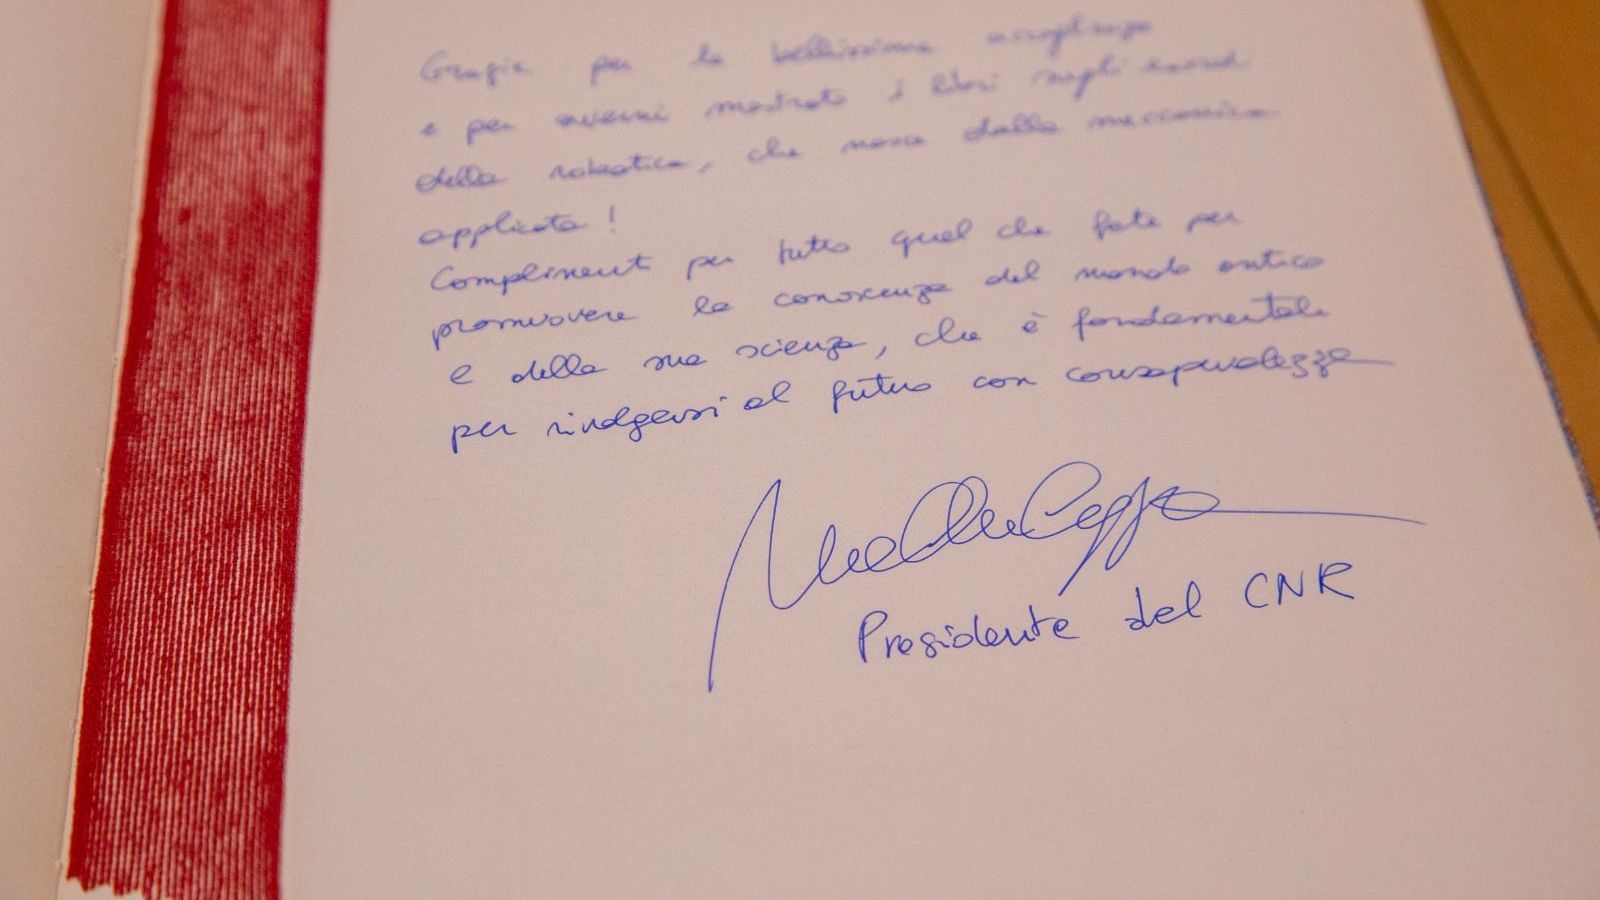 Grazie per la bellissima accoglienza
e per avermi mostrato i libri sugli esordi
della robotica, che nasce dalla meccanica
applicata!
Complimenti per tutto quel che fate per
promuovere la conoscenza del mondo antico
e della sua scienza, che è fondamentale
per rivolgersi al futuro con consapevolezza
Presidente del CNR